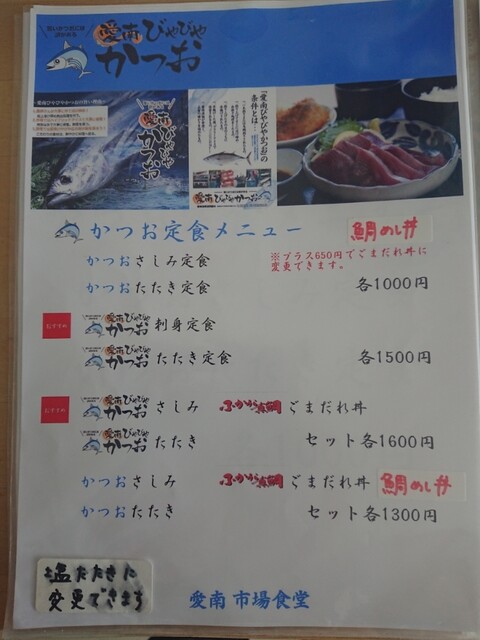 愛南 びやびや
かつお
愛南びやびや
かつお
「愛南びやびやかつお」の
条件とは
かつお定食メニュー 鯛めし丼
かつおさしみ定食 ※プラス650円でごまだれ丼に
変更できます。
かつおたたき定食 各1000円
おすすめ 愛南びやびやかつお 刺身定食
愛南びやびやかつお たたき定食 各1500円
おすすめ 愛南びやびやかつお さしみ ふかうら真鯛 ごまだれ丼
愛南びやびやかつお たたき セット各1600円
かつおさしみ ふかうら真鯛 ごまだれ丼 鯛めし丼
かつおたたき セット各1300円
塩たたきに
変更できます
愛南 市場食堂